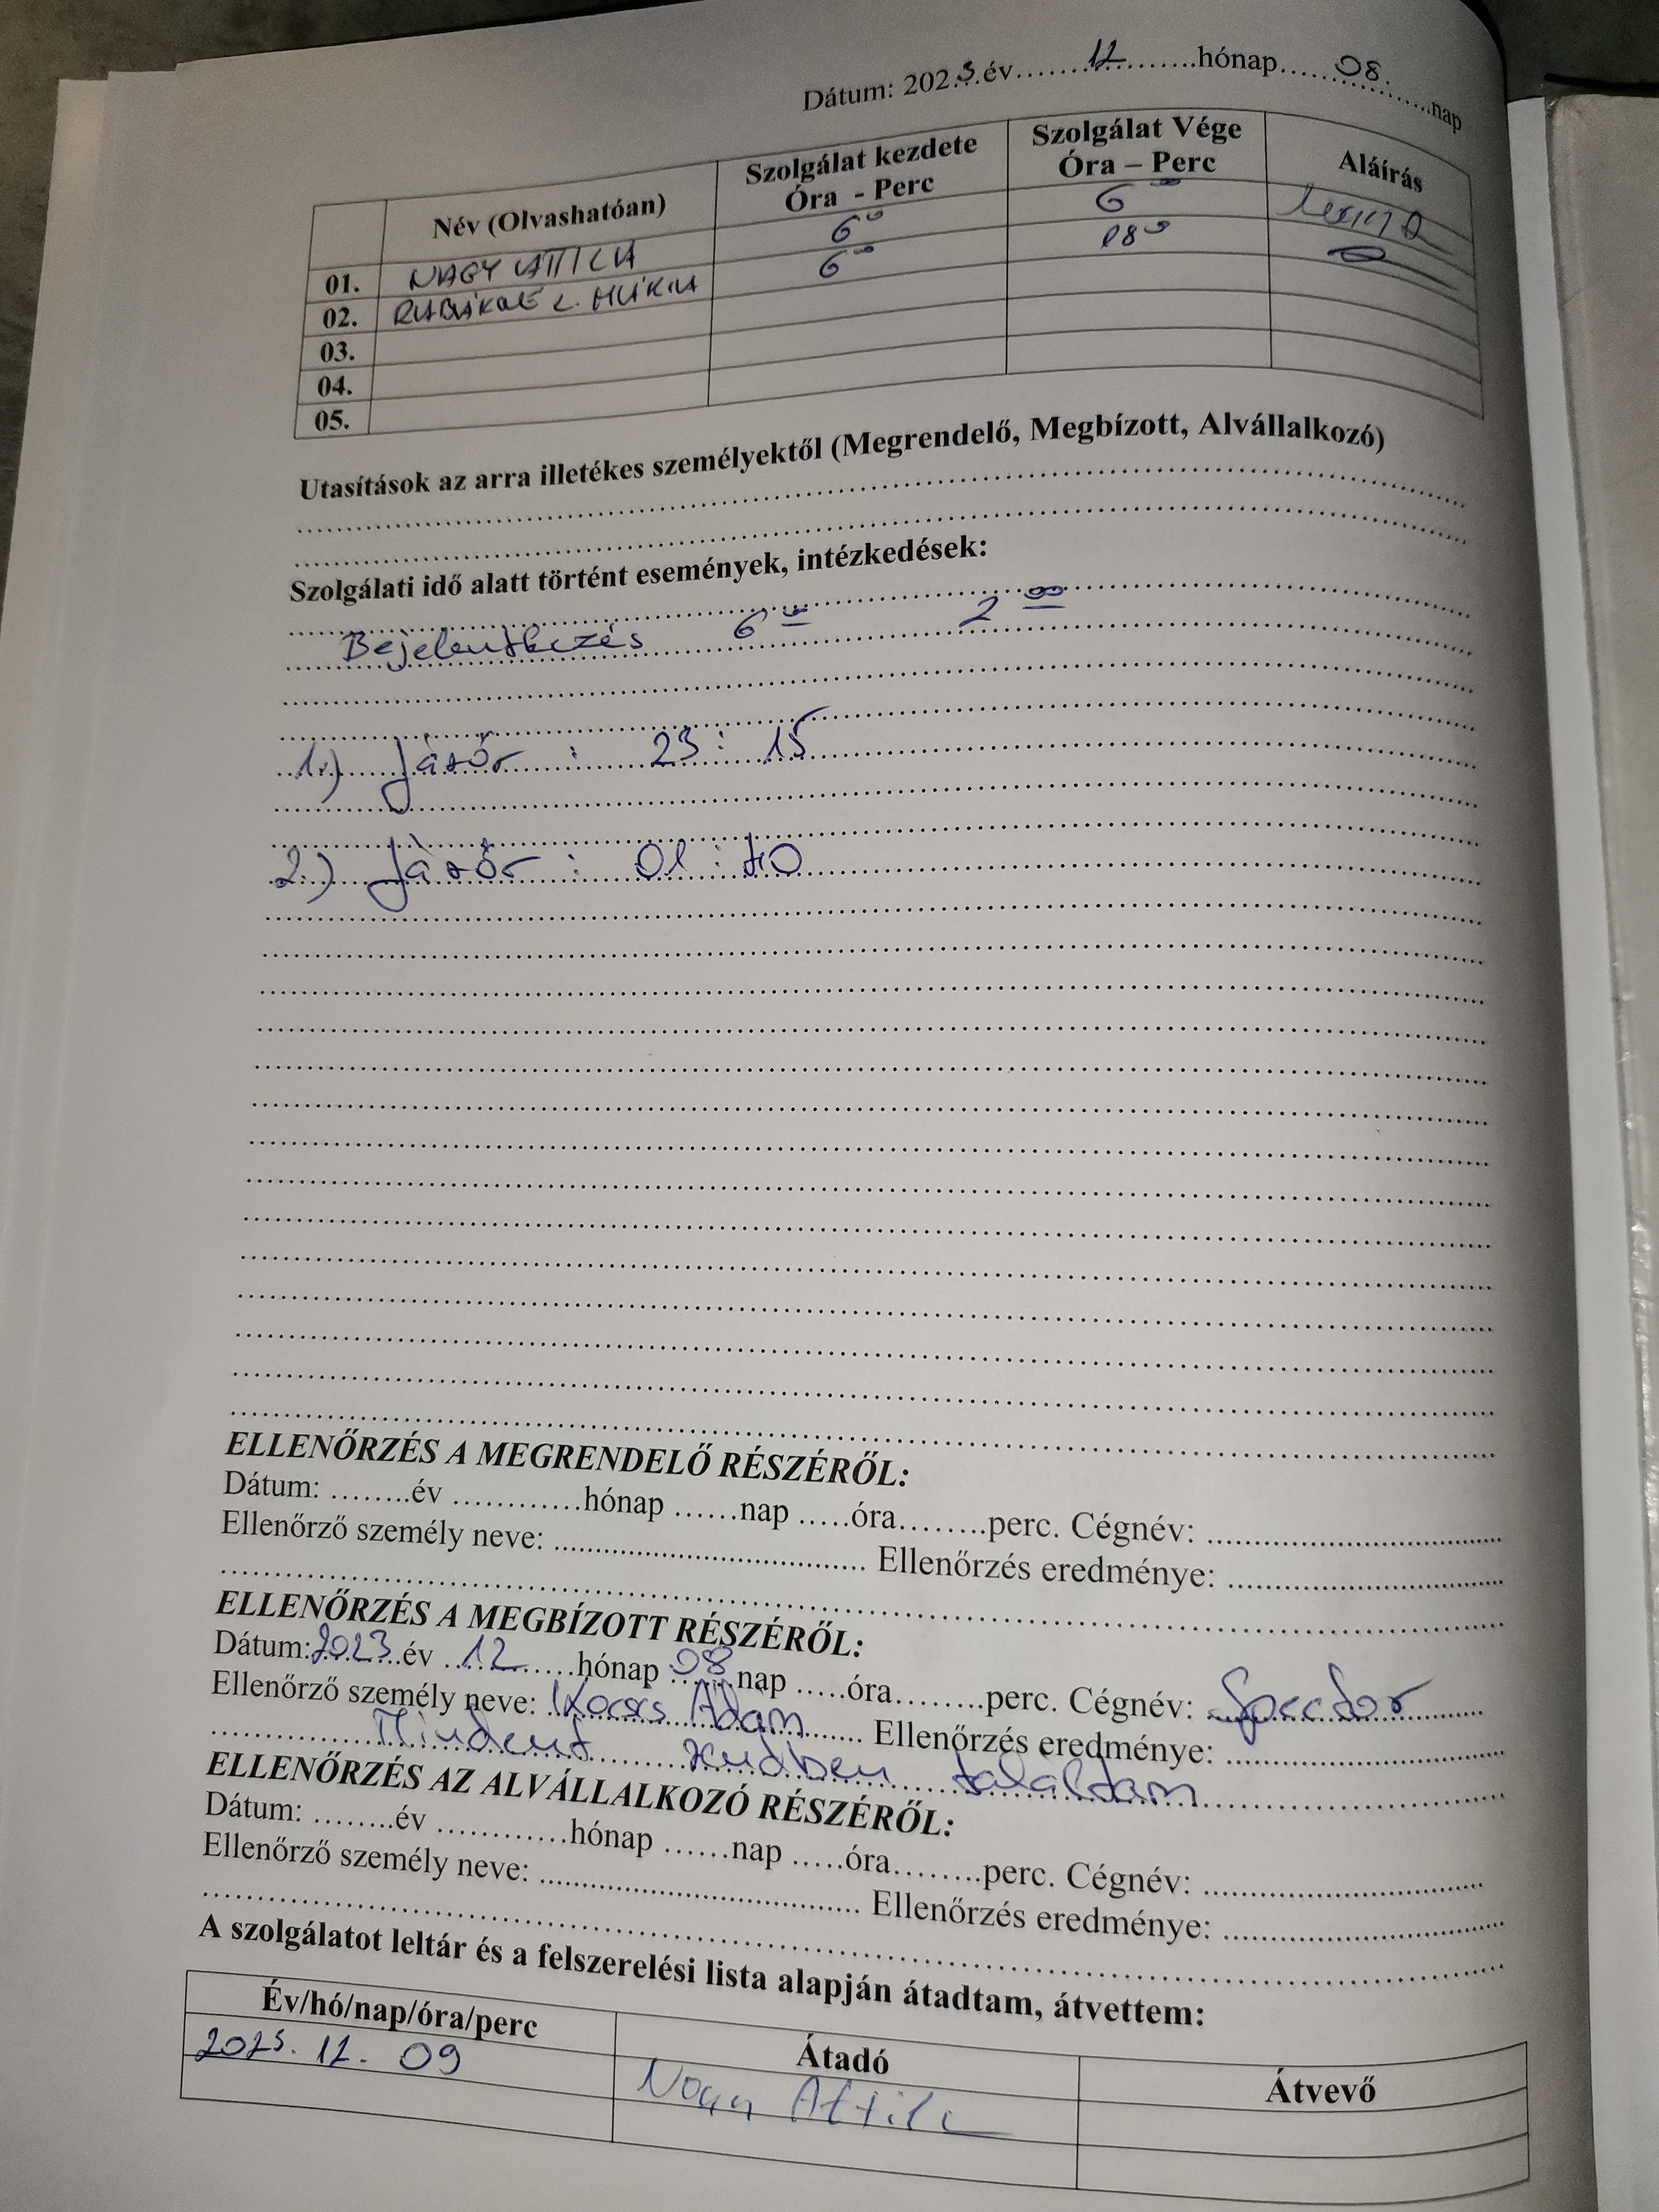 Dátum: 2023 év 12 hónap 08. nap
Név (Olvashatóan) Szolgálat kezdete Óra - Perc Szolgálat Vége Óra – Perc Aláírás
01. NAGY ATTILA 6⁰⁰ 6⁰⁰
02. L. MÁRIA 6⁰⁰ 18⁰⁰
03.
04.
05.
Utasítások az arra illetékes személyektől (Megrendelő, Megbízott, Alvállalkozó)
Szolgálati idő alatt történt események, intézkedések:
Bejelentkezés 6⁰⁰ 2⁰⁰
1.) Járőr : 23 : 15
2.) Járőr : 01 : 40
ELLENŐRZÉS A MEGRENDELŐ RÉSZÉRŐL:
Dátum: ........év ............hónap ......nap .....óra........perc. Cégnév: ....................
Ellenőrző személy neve: .................... Ellenőrzés eredménye: ....................
ELLENŐRZÉS A MEGBÍZOTT RÉSZÉRŐL:
Dátum: 2023 év 12 hónap 08 nap .....óra........perc. Cégnév: Spector
Ellenőrző személy neve: Kocsis Ádám Ellenőrzés eredménye: ....................
Mindent rendben találtam
ELLENŐRZÉS AZ ALVÁLLALKOZÓ RÉSZÉRŐL:
Dátum: ........év ............hónap ......nap .....óra........perc. Cégnév: ....................
Ellenőrző személy neve: .................... Ellenőrzés eredménye: ....................
A szolgálatot leltár és a felszerelési lista alapján átadtam, átvettem:
Év/hó/nap/óra/perc Átadó Átvevő
2023. 12. 09 Nagy Attila